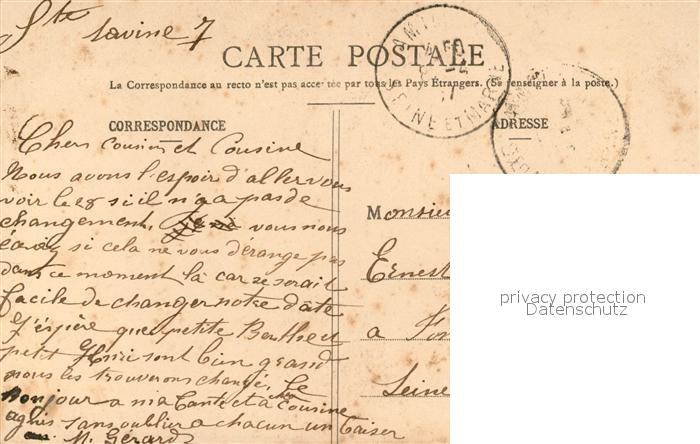 Ste Savine 7
CARTE POSTALE
La Correspondance au recto n'est pas acceptée par tous les Pays Étrangers. (Se renseigner à la poste.)
CORRESPONDANCE
ADRESSE
SEINE ET MARNE
Chers cousin et Cousine
Nous avons l'espoir d'aller vous
voir le 28 si il n'y a pas de
changement. vous nous
si cela ne vous dérange pas
dans ce moment là car ze serait
facile de changer notre date
J'éspère que petite Berthe et
petit sont bien grand
nous les trouverons changé. Le
Bonjour a ma tante et a Cousine
sans oublier a chacun un baiser
M. Gérard
Monsieu
Ernest
a Fon
Seine
privacy protection
Datenschutz